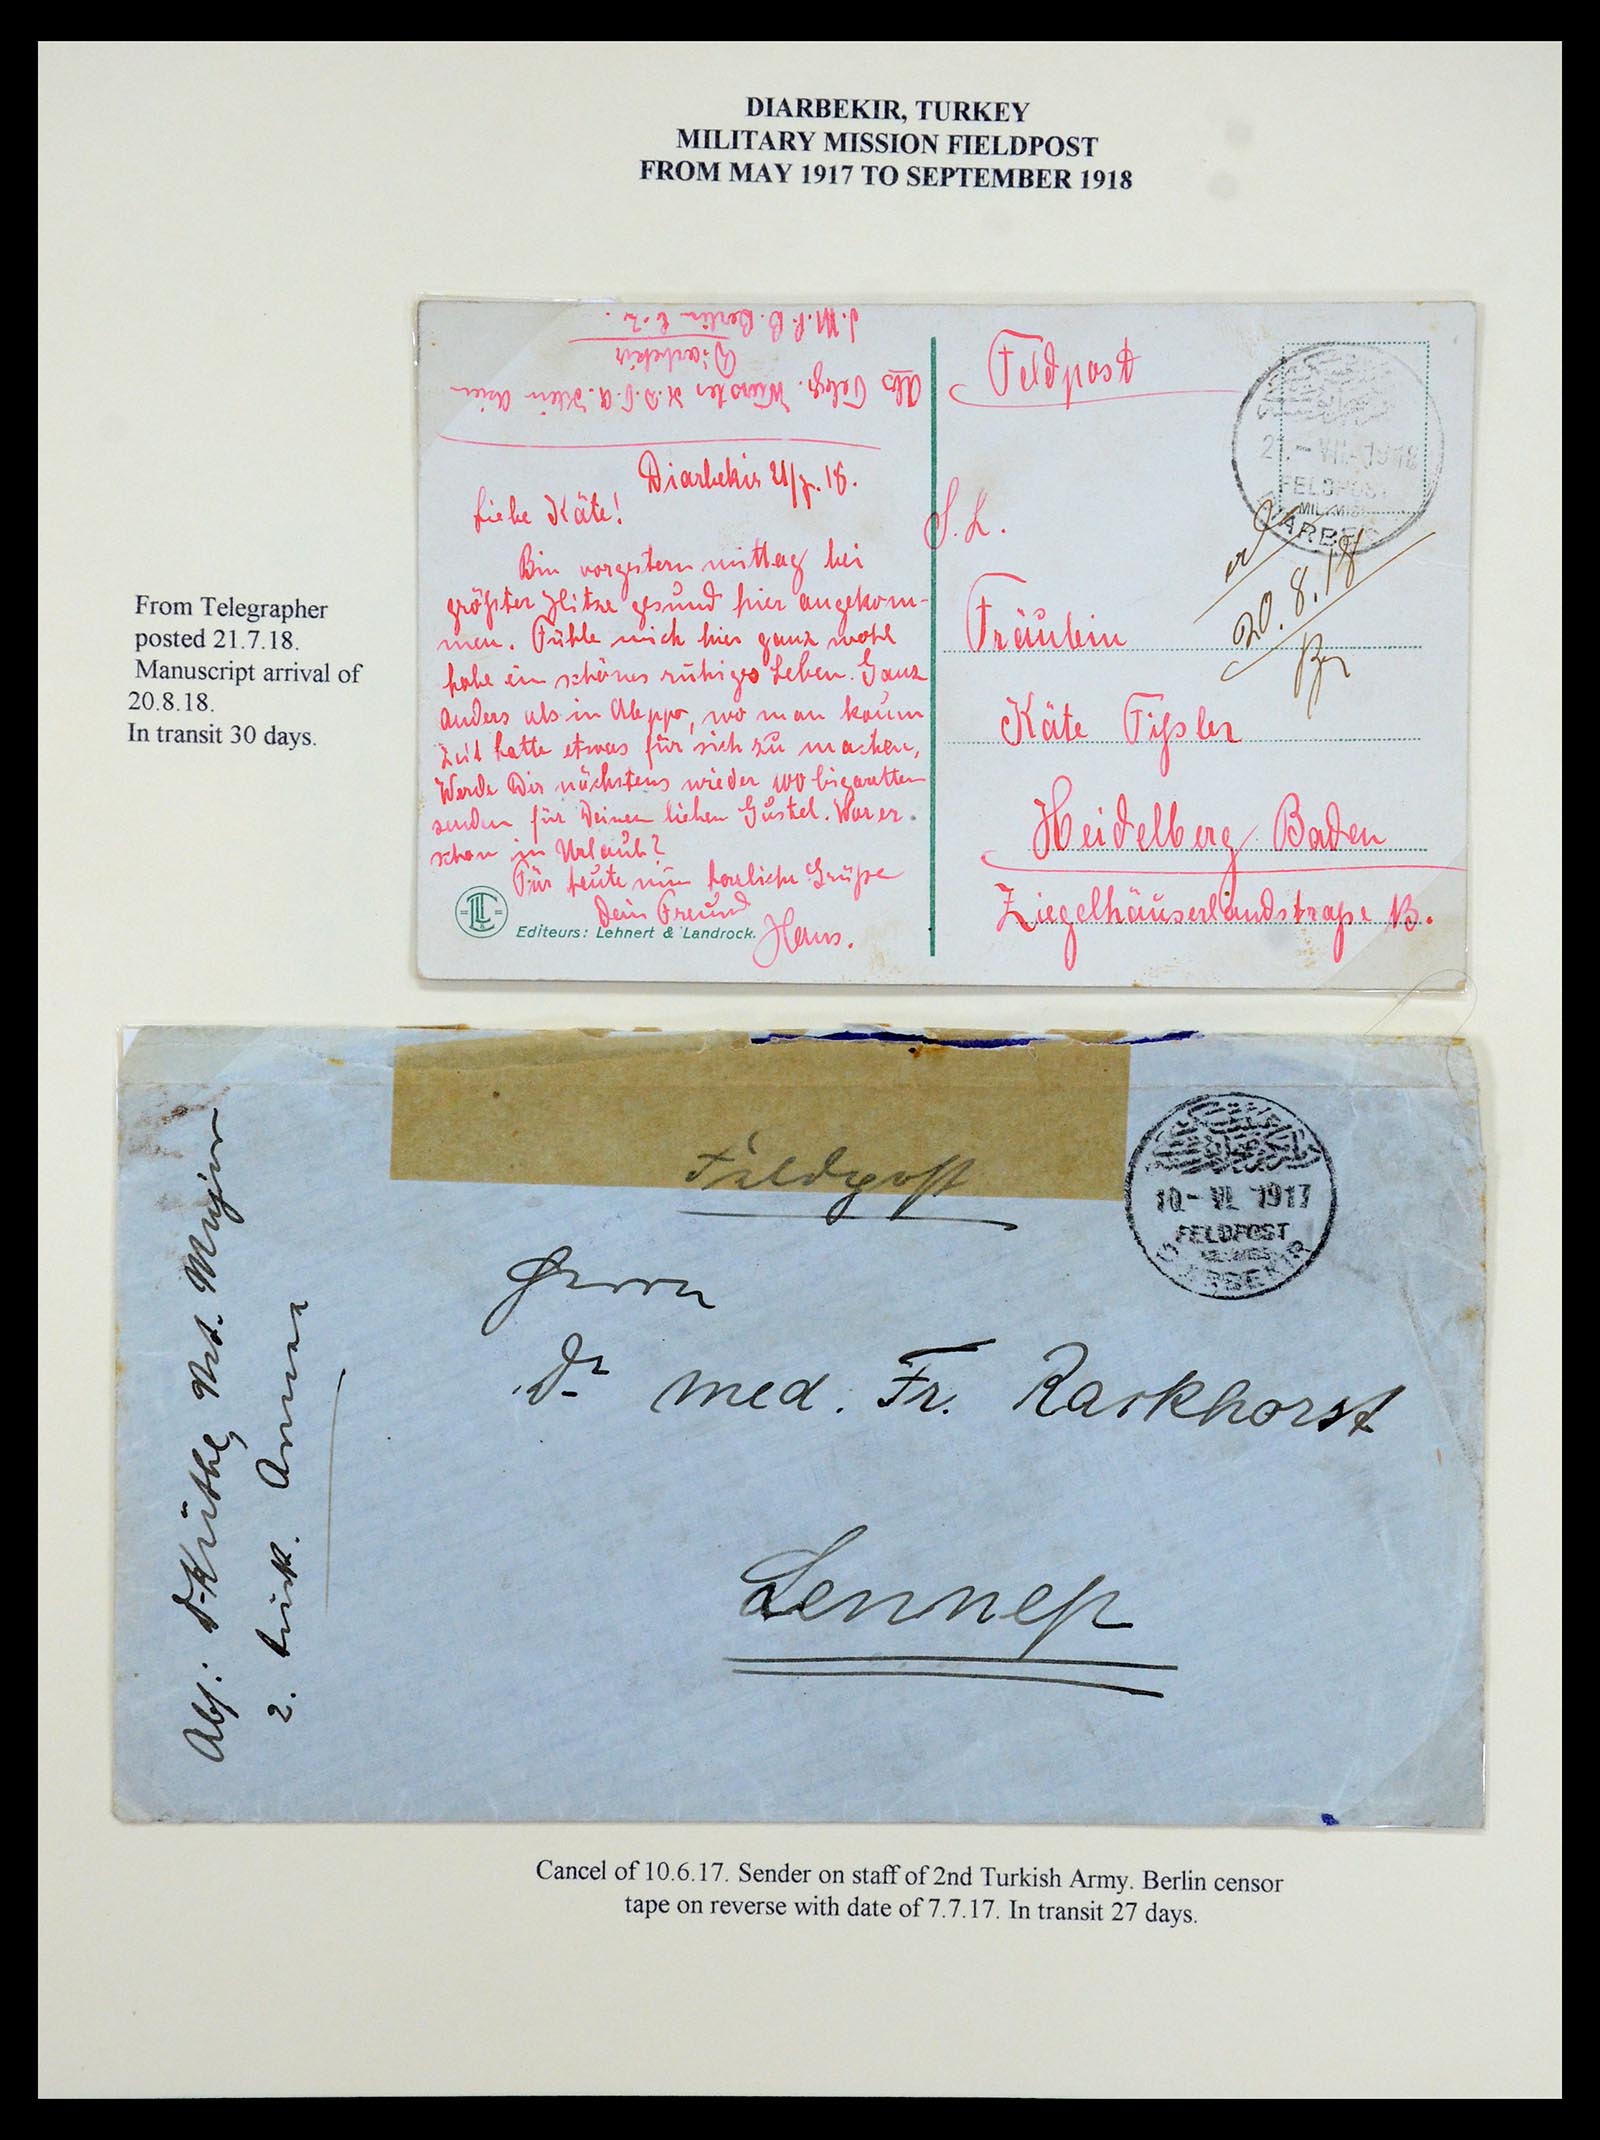 DIARBEKIR, TURKEY
MILITARY MISSION FIELDPOST
FROM MAY 1917 TO SEPTEMBER 1918
From Telegrapher
posted 21.7.18.
Manuscript arrival of
20.8.18.
In transit 30 days.
Abs Telegr. K.D.F.A. Klein Asien
Diarbekir
J.M.K.B. Berlin
Diarbekir 21/7.18.
Liebe Käte!
Bin vorgestern mittag bei
größter Hitze gesund hier angekom-
men. Fühle mich hier ganz wohl
habe ein schönes ruhiges Leben. Ganz
anders als in Aleppo, wo man kaum
Zeit hatte etwas für sich zu machen,
Werde Dir nächstens wieder 100 Cigaretten
senden für Deinen lieben Gustel. War er
schon in Urlaub?
Für heute nun herzliche Grüße
Dein Freund
Hans.
LL&
Editeurs: Lehnert & Landrock.
Feldpost
21.-VII.1918
FELDPOST
MIL.MISS.
DIARBEKIR
S. L.
20.8.18
Fräulein
Käte Fißler
Heidelberg Baden
Ziegelhäuserlandstraße 13.
Feldpost
10-VI. 1917
FELDPOST
MIL.MISS.
DIARBEKIR
Herrn
Dr med. Fr. Rackhorst
Lennep
Abs: Dr Küthe, Major
2. türk. Armee
Cancel of 10.6.17. Sender on staff of 2nd Turkish Army. Berlin censor
tape on reverse with date of 7.7.17. In transit 27 days.